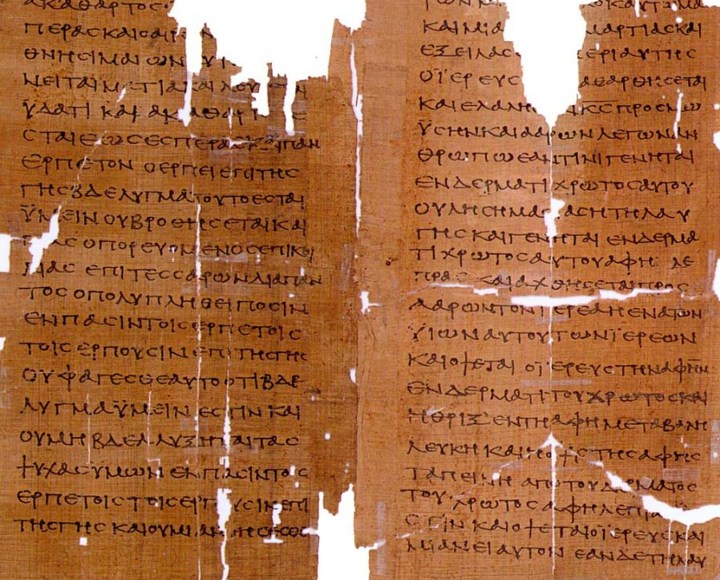 ΑΚΑΘΑΡΤΟϹ
ΠΕΡΑϹ ΚΑΙ Ο ΑΙΡΩ
ΘΝΗϹΙΜΑΙΩΝ
ΝΕΙ ΤΑ ΙΜΑΤΙΑ ΚΑΙ ΛΟΥ
ΫΔΑΤΙ ΚΑΙ ΑΚΑΘΑΡ
ϹΤΑΙ ΕΩϹ ΕϹΠΕΡΑϹ ΚΑΙ ΠΑΝ
ΕΡΠΕΤΟΝ Ο ΕΡΠΕΙ ΕΠΙ ΤΗϹ
ΓΗϹ ΒΔΕΛΥΓΜΑ ΤΟΥΤΟ ΕϹΤΑΙ
ΫΜΕΙΝ ΟΥ ΒΡΟΘΗϹΕΤΑΙ ΚΑΙ
ΠΑϹ Ο ΠΟΡΕΥΟΜΕΝΟϹ ΕΠΙ ΚΟΙ
ΛΙΑϹ ΕΠΙ ΤΕϹϹΑΡΩΝ ΔΙΑ ΠΑΝ
ΤΟϹ Ο ΠΟΛΥΠΛΗΘΕΙ ΠΟϹΙΝ
ΕΝ ΠΑϹΙΝ ΤΟΙϹ ΕΡΠΕΤΟΙϹ
ΤΟΙϹ ΕΡΠΟΥϹΙΝ ΕΠΙ ΤΗϹ ΓΗϹ
ΟΥ ΦΑΓΕϹΘΕ ΑΥΤΟ ΟΤΙ ΒΔΕ
ΛΥΓΜΑ ΫΜΕΙΝ ΕϹΤΙΝ ΚΑΙ
ΟΥ ΜΗ ΒΔΕΛΛΥΞΗΤΑΙ ΤΑϹ
ΨΥΧΑϹ ΥΜΩΝ ΕΝ ΠΑϹΙΝ ΤΟΙϹ
ΕΡΠΕΤΟΙϹ ΤΟΙϹ ΕΡΠΟΥϹΙΝ ΕΠΙ
ΤΗϹ ΓΗϹ ΚΑΙ ΟΥ ΜΙΑΝΘΗϹΕϹΘΕ
ΚΑΙ ΜΙΑ ΜΑΡΤΙΑϹ ΚΑΙ
ΕΞΕΙΛΑϹ ΠΕΡΙ ΑΥΤΗϹ
Ο ΪΕΡΕΥϹ ΚΑΘΑΡΘΗϹΕΤΑΙ
ΚΑΙ ΕΛΑΛΗ ΚϹ ΠΡΟϹ ΜΩ
ΫϹΗΝ ΚΑΙ ΑΑΡΩΝ ΛΕΓΩΝ ΑΝ
ΘΡΩΠΩ ΕΑΝ ΤΙΝΙ ΓΕΝΗΤΑΙ
ΕΝ ΔΕΡΜΑΤΙ ΧΡΩΤΟϹ ΑΥΤΟΥ
ΟΥΛΗ ϹΗΜΑϹΙΑϹ Η ΤΗΛΑΥ
ΓΗϹ ΚΑΙ ΓΕΝΗΤΑΙ ΕΝ ΔΕΡΜΑ
ΤΙ ΧΡΩΤΟϹ ΑΥΤΟΥ ΑΦΗ ΛΕ
ΠΡΑϹ ΚΑΙ ΑΧΘΗϹΕΤΑΙ ΠΡΟϹ
ΑΑΡΩΝ ΤΟΝ ΪΕΡΕΑ Η ΕΝΑ ΤΩΝ
ΫΙΩΝ ΑΥΤΟΥ ΤΩΝ ΪΕΡΕΩΝ
ΚΑΙ ΟΨΕΤΑΙ Ο ΪΕΡΕΥϹ ΤΗΝ ΑΦΗΝ
ΕΝ ΔΕΡΜΑΤΙ ΤΟΥ ΧΡΩΤΟϹ ΚΑΙ
Η ΘΡΙΞ ΕΝ ΤΗ ΑΦΗ ΜΕΤΑΒΑΛΗ
ΛΕΥΚΗ ΚΑΙ Η ΟΨΙϹ ΤΗϹ ΑΦΗϹ
ΤΑΠΕΙΝΗ ΑΠΟ ΤΟΥ ΔΕΡΜΑΤΟϹ
ΤΟΥ ΧΡΩΤΟϹ ΑΦΗ ΛΕΠΡΑ
ϹΤΙΝ ΚΑΙ ΟΨΕΤΑΙ Ο ΪΕΡΕΥϹ ΚΑΙ
ΜΙΑΝΕΙ ΑΥΤΟΝ ΕΑΝ ΔΕ ΤΗΛΑΥ